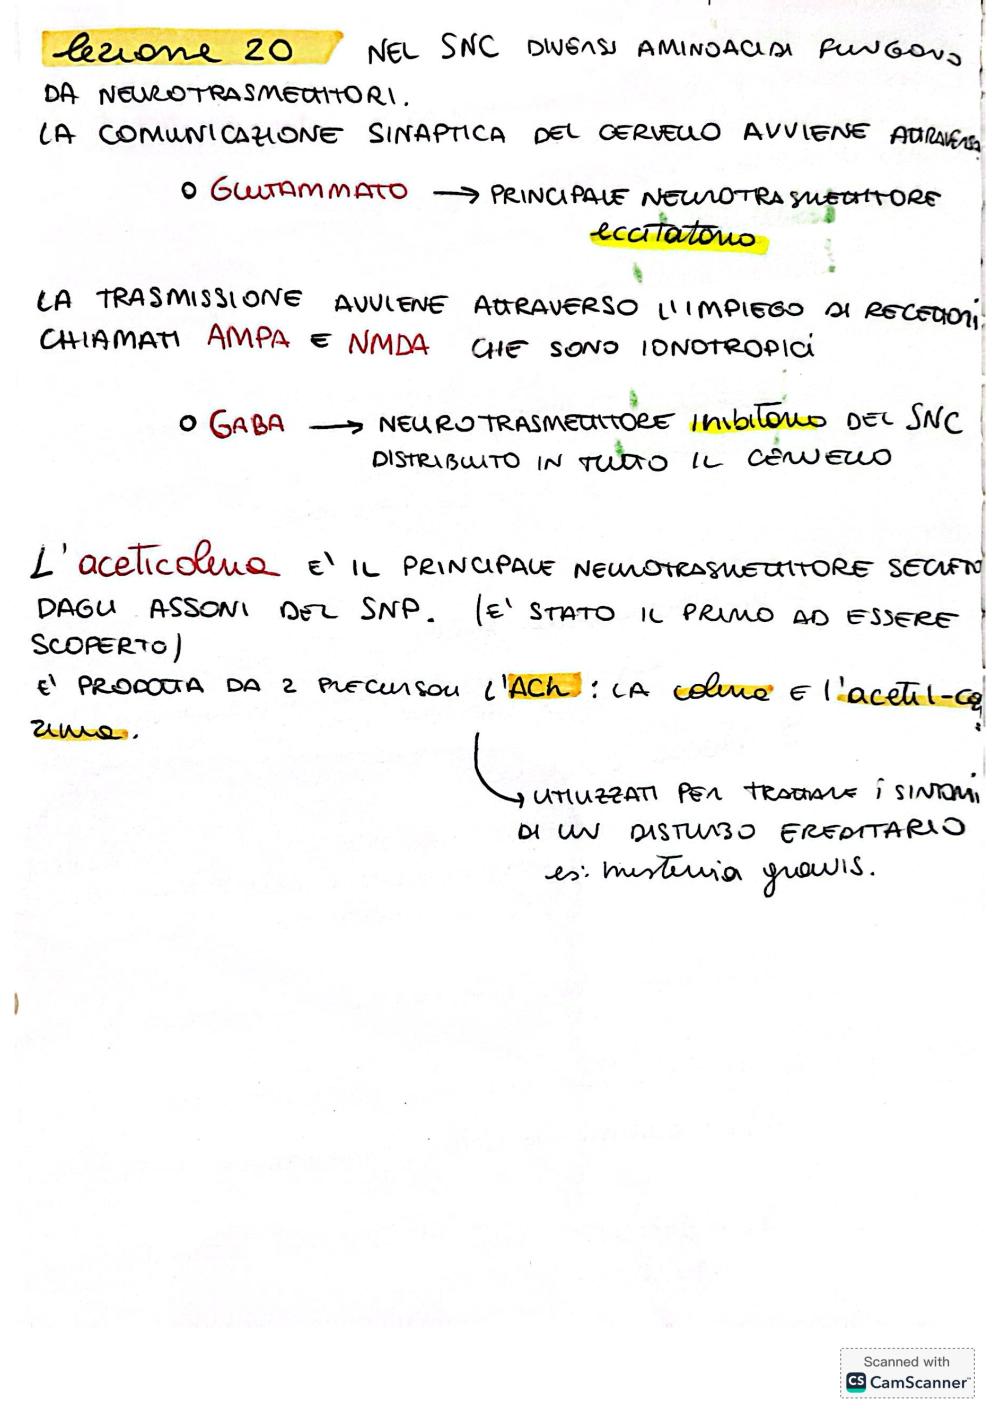 lezione 20 NEL SNC DIVERSI AMINOACIDI FUNGONO
DA NEUROTRASMETTITORI.
LA COMUNICAZIONE SINAPTICA DEL CERVELLO AVVIENE ATTRAVERSO
GLUTAMMATO → PRINCIPALE NEUROTRASMETTITORE
eccitatorio
LA TRASMISSIONE AVVIENE ATTRAVERSO L'IMPIEGO DI RECETTORI
CHIAMATI AMPA E NMDA CHE SONO IONOTROPICI
GABA → NEUROTRASMETTITORE inibitorio DEL SNC
DISTRIBUITO IN TUTTO IL CERVELLO
L'aceticolena E' IL PRINCIPALE NEUROTRASMETTITORE SECRETO
DAGLI ASSONI DEL SNP. (E' STATO IL PRIMO AD ESSERE
SCOPERTO)
E' PRODOTTA DA 2 PRECURSORI L'ACh: LA colina E l'acetil-co
zima.
→ UTILIZZATI PER TRATTARE i SINTOMI
DI UN DISTURBO EREDITARIO
es: mistenia gravis.
Scanned with
CS CamScanner